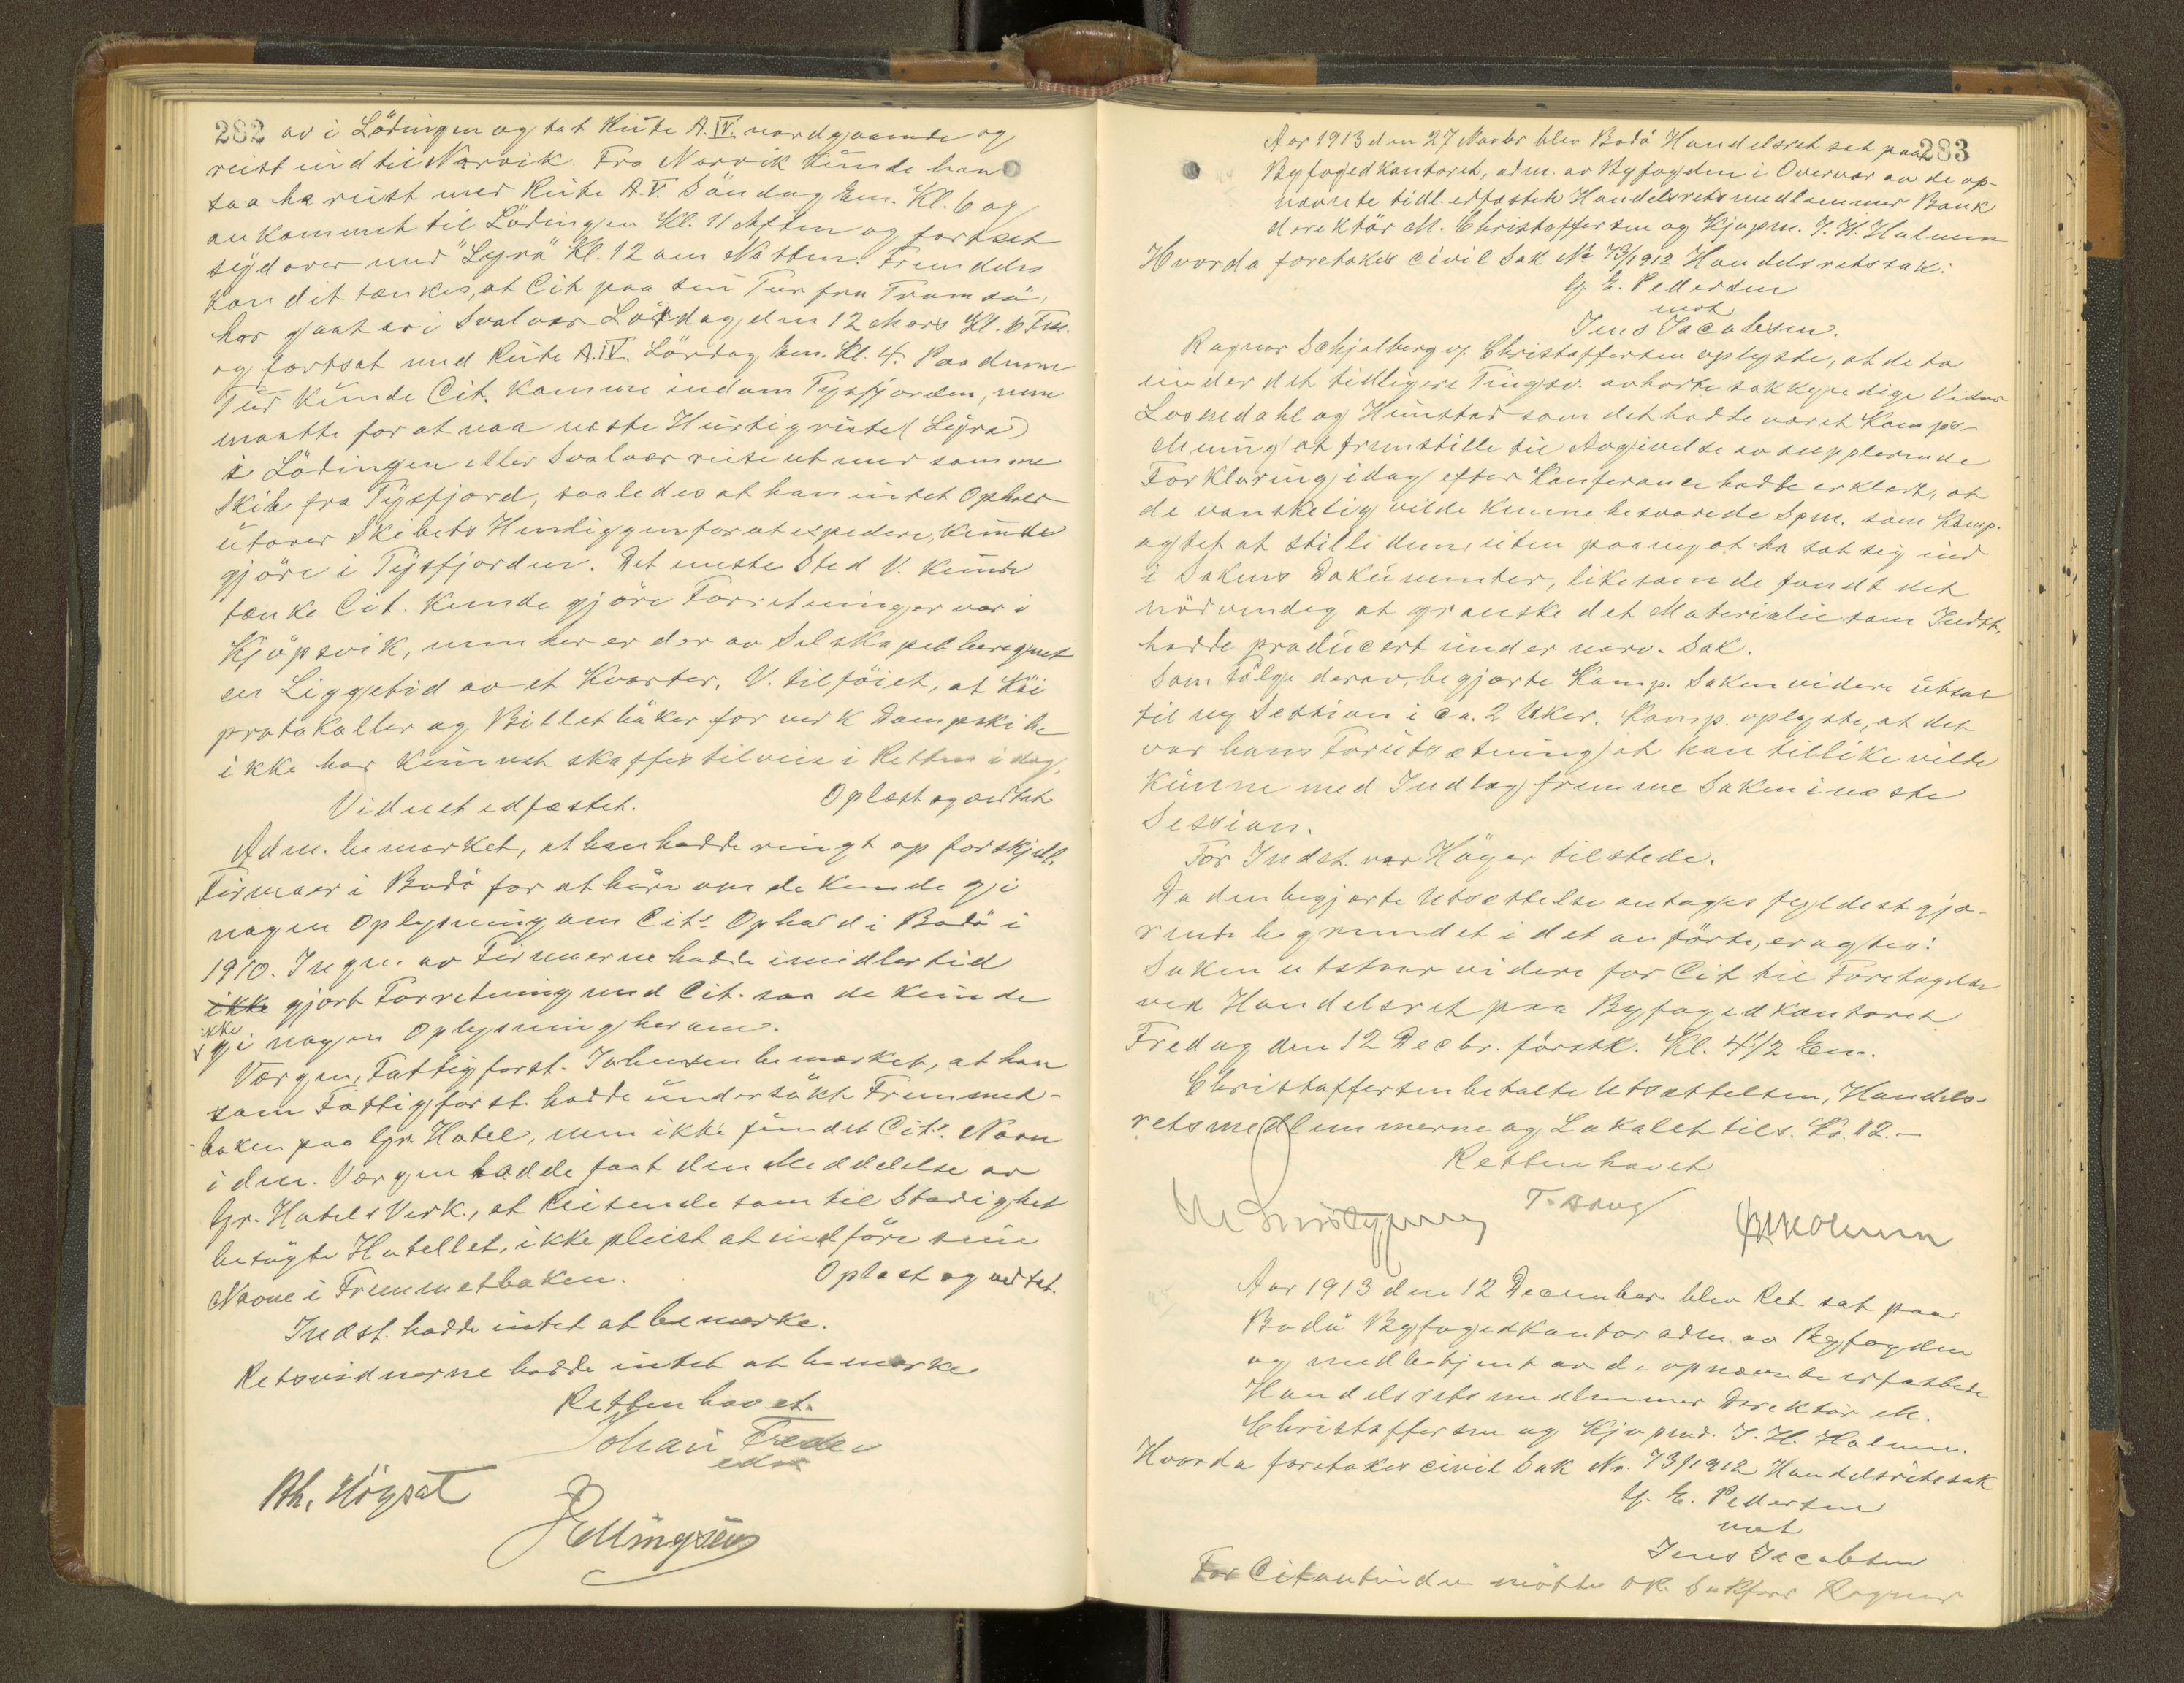 282 av i Lödingen og tat Rute A.IV. nordgaaende og
reist ind til Narvik. Fra Narvik kunde han
saa ha reist med Rute A.V. Söndag Em. Kl. 6 og
ankommet til Lödingen Kl. 11 Aften og fortsat
sydover med "Lyra" Kl. 12 om Natten. Fremdeles
kan det tænkes, at Cit paa sin Tur fra Tromsö,
har gaat av i Svolvær Lördag den 12 Mars Kl. 6 Fm.
og fortsat med Rute A.IV. Lördag Em. Kl. 4. Paa denne
Tur kunde Cit. komme indom Tysfjorden, men
maatte for at naa næste Hurtigrute (Lyra)
i Lödingen eller Svolvær reise ut med samme
Skib fra Tysfjord, saaledes at han intet Ophold
utover Skibets Henliggen for at expedere, kunde
gjöre i Tysfjorden. Det eneste Sted V. kunde
tænke Cit. kunde gjöre Forretninger var i
Kjöpsvik, men her er der av Selskapet beregnet
en Liggetid av et Kvarter. V. tilföiet, at Köi
protokoller og Billetböker for ved k Dampskibe
ikke har kunnet skaffes tilveie i Retten idag.
Vidnet edfæstet. Oplæst og vedtat
Adm. bemærket, at han hadde ringt op forskjell.
Firmaer i Bodö for at höre om de kunde gi
nogen Oplysning om Cits Ophold i Bodö i
1910. Ingen av Firmaerne hadde imidlertid
ikke gjort Forretning med Cit. saa de kunde
ikke
gi nogen Oplysning herom.
Værgen, Fattigforst. Johensen bemærket, at han
som Fattigforst. hadde undersökt Fremmed-
boken paa Gr. Hotel, men ikke fundet Cits. Navn
i den. Værgen hadde faat den Meddelelse av
Gr. Hotels Verk., at Reisende som til Stadighet
besögte Hotellet, ikke pleiet at indföre sine
Navne i Fremmetboken. Oplæst og vedtat.
Indst. hadde intet at bemærke.
Retsvidnerne hadde intet at bemærke
Retten hævet.
Johan
Bh. Högsæt
Ellingsen
283
Aar 1913 den 27 Novbr blev Bodö Handelsret sat paa
Byfogedkontoret, adm. av Byfogden i Overvær av de op-
nævnte tidl. edfæstede Handelsretsmedlemmer Bank
direktör M. Christoffersen og Kjøpm. J. H. Holmen
Hvorda foretokes civil Sak No 73/1912 Handelsretssak:
G. E. Pedersen
mot
Jens Jacobsen.
Ragnar Schjølberg v. Christoffersen oplyste, at de to
under det tidligere Tingsv. avhørte sakkyndige Vidner
Løvendahl og Hunstad som det hadde været Komps-
Mening at fremstille til Avgivelse av supplerende
Forklaring idag efter Konferance hadde erklært, at
de vanskelig vilde kunne besvare de Spm. som Komp.
agtet at stille dem, uten paany at ha sat sig ind
i Sakens Dokumenter, likesom de fandt det
nödvendig at granske det Materiale som Indst.
hadde producert under nærv. Sak.
Som fölge derav, begjærte Komp. Saken videre utsat
til ny Session i ca. 2 Uker. Komp. oplyste, at det
var hans Forutsætning, at han tillike vilde
kunne med Indlæg fremme Saken i næste
Session.
For Indst. var Höyer tilstede.
Da den begjærte Utsættelse antages fyldestgjø-
rende begrundet i det anförte, eragtes:
Saken utstaar videre for Cit til Foretagelse
ved Handelsret paa Byfogedkontoret
Fredag den 12 Decbr. förstk. Kl. 4 1/2 Em.
Christoffersen betalte Utsættelsen, Handels-
retsmedlemmerne og Lokalet tils. Kr. 12.-
Retten hævet
Aar 1913 den 12 December blev Ret sat paa
Bodö Byfogedkontor adm. av Byfogden
og medbetjent av de opnævnte edfæstede
Handelsretsmedlemmer Direktör M.
Christoffersen og Kjøpmd. J. H. Holmen.
Hvorda foretokes civil Sak No. 73/1912 Handelsretssak
G. E. Pedersen
mot
Jens Jacobsen
For Citantinden mötte OR. Sakfører Ragnar